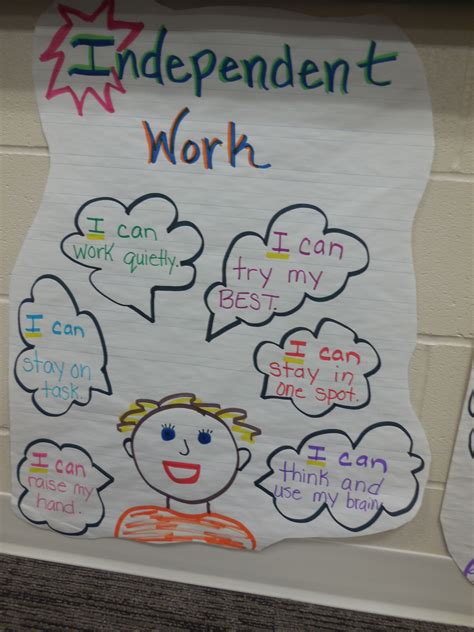 Independent
Work
I can
work quietly.
I can
try my
BEST.
I can
stay on
task.
I can
stay in
one spot.
I can
raise my
hand.
I can
think and
use my brain.